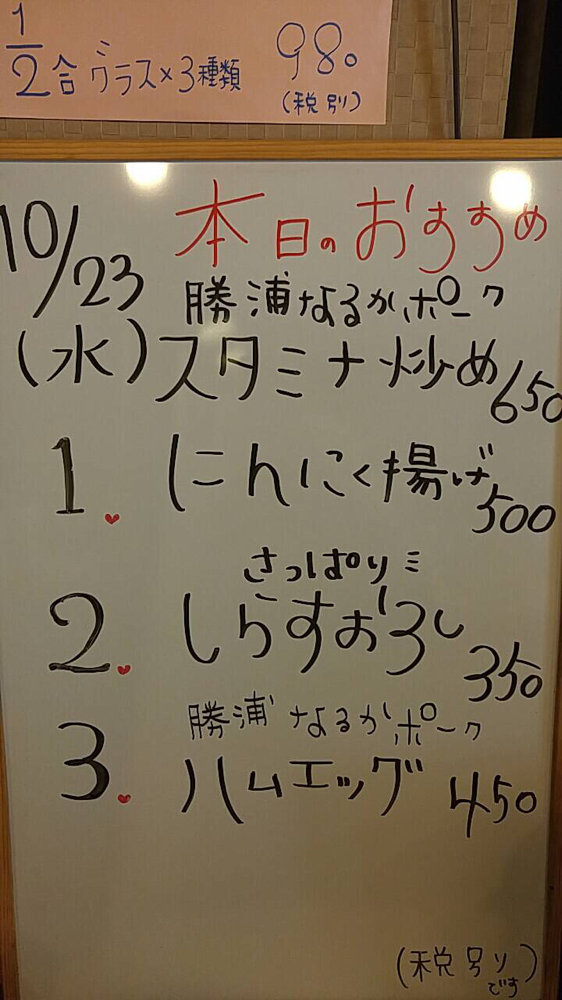 1/2合グラス×3種類 980
(税別)
10/23
(水)
本日のおすすめ
勝浦なるかポーク
スタミナ炒め 650
1. にんにく揚げ 500
さっぱり
2. しらすおろし 350
勝浦なるかポーク
3. ハムエッグ 450
(税別です)